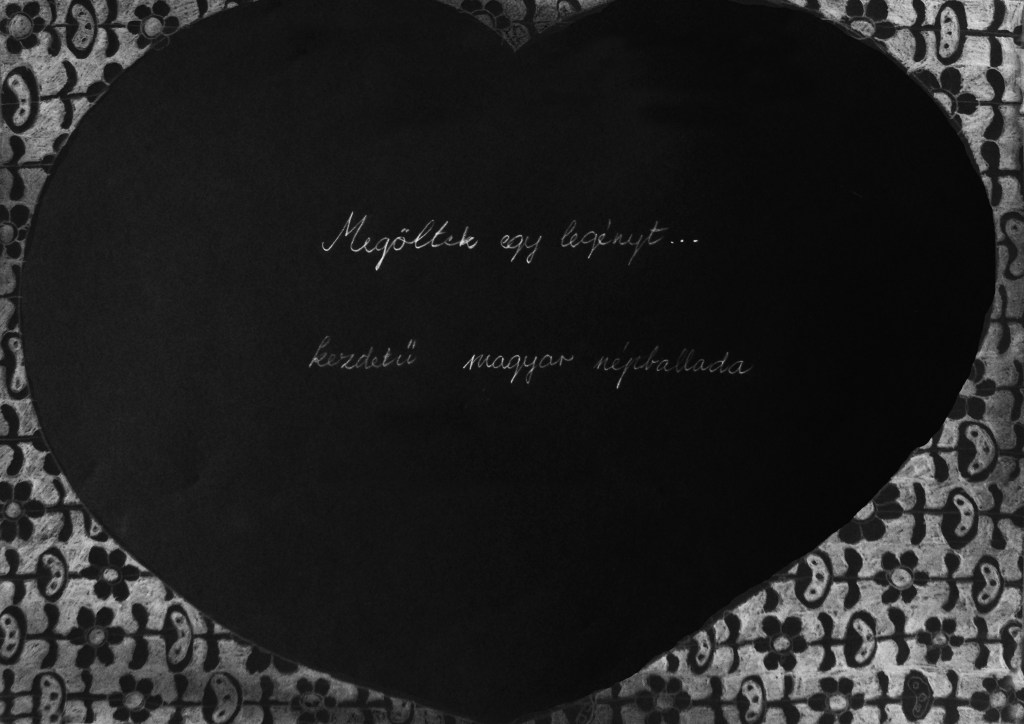 Megöltek egy legényt...
kezdetű magyar népballada